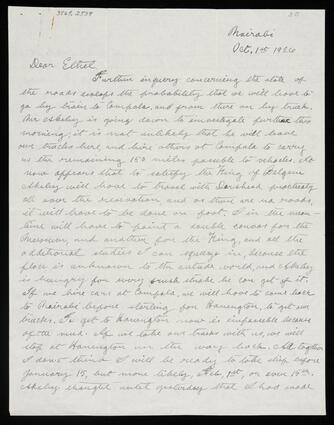 3868, 2538
30
Nairobi
Oct, 1st 1926
Dear Ethel
Further inquery concerning the state of
the roads exists the probability that we will have to
go by train to Campala, and from there on by truck.
Mr Akeley is going down to investigate further this
morning; it is not unlikely that he will leave
our trucks here and hire others at Campala to carry
us the remaining 150 miles passible to vehicles. It
now appears that to satisfy the King of Belgium
Akeley will have to travel with Derscheid practically
all over the reservation, and as there are no roads,
it will have to be done on foot. I in the mean-
time will have to paint a double canvas for the
Museum, and another for the King, and all the
additional studies I can squeeze in, because the
place is unknown to the outside world, and Akeley
is hungry for every brush stroke he can get of it.
If we hire cars at Campala, we will have to come back
to Nairobi before starting for Hannington, to get our
trucks. To get to Hannington now is impossible because
of the mud. If we take our trucks with us, we will
stop at Hannington on the way back. All together
I dont think I will be ready to take ship before
January 15, but more likely, Feb. 1st, or even 15th.
Akeley thought until yesterday that I had made